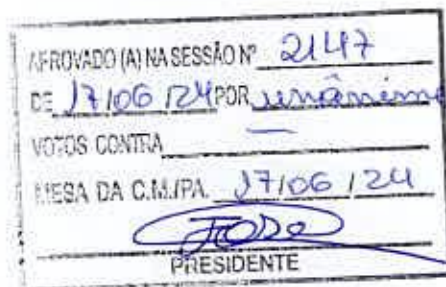 AFROVADO (A) NA SESSÃO Nº 2147
DE 17/06/24 POR unânime
VOTOS CONTRA —
MESA DA C.M./PA. 17/06/24
PRESIDENTE